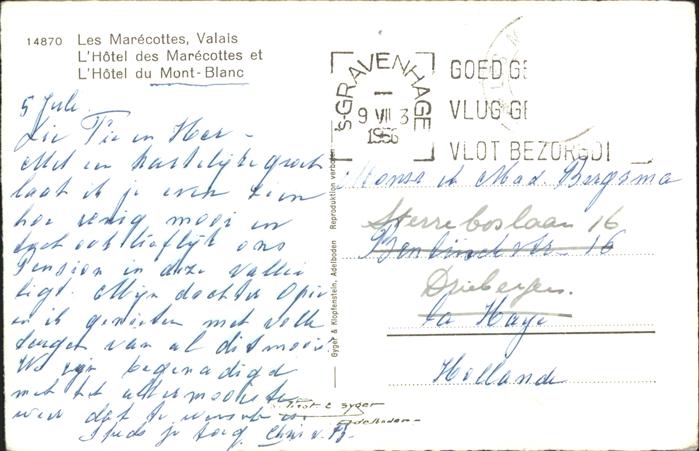 14870 Les Marécottes, Valais
L'Hôtel des Marécottes et
L'Hôtel du Mont-Blanc
5 Juli.
Lie Tie en Her -
Met een hartelijke groet
laat ik je even zien
hoe enig mooi en
ook lieflijk ons
Pension in deze vallei
ligt. Mijn dochter
en ik genieten met volle
teugen van al dit moois
We zijn begenadigd
met het allermooiste
weer dat te wensen is
Steeds je
Gyger & Klopfenstein, Adelboden Reproduktion verboten
's-GRAVENHAGE
9 VII 3
1956
GOED GE
VLUG GE
VLOT BEZORGD!
Monsr et Mad. Bergsma
Sterreboslaan 16
Bentinckstr. 16
Driebergen.
La Haye
Hollande
Gyger
Adelboden